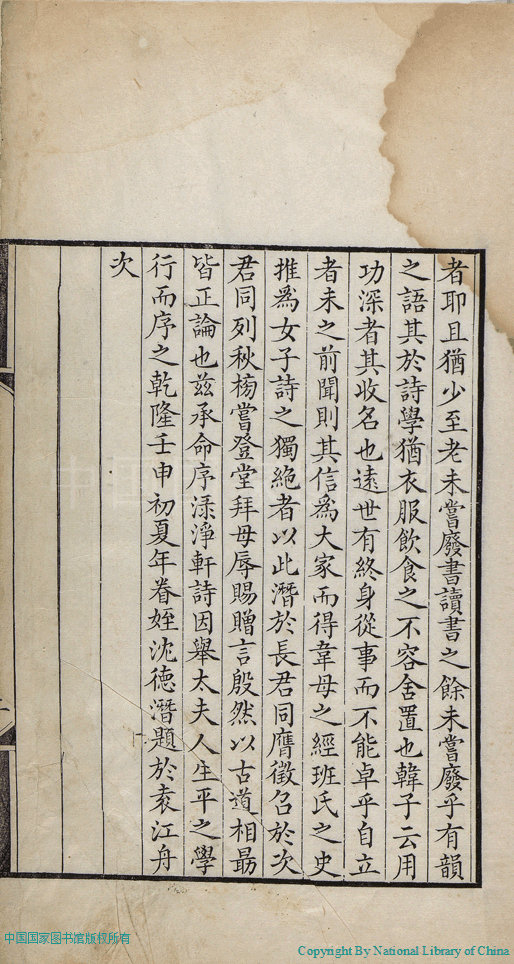 者耶且猶少至老未嘗廢書讀書之餘未嘗廢乎有韻
之語其於詩學猶衣服飲食之不容舍置也韓子云用
功深者其收名也遠世有終身從事而不能卓乎自立
者未之前聞則其信爲大家而得韋母之經班氏之史
推爲女子詩之獨絶者以此潛於長君同膺徵召於次
君同列秋榜嘗登堂拜母辱賜贈言殷然以古道相勗
皆正論也兹承命序渌淨軒詩因舉太夫人生平之學
行而序之乾隆壬申初夏年眷姪沈德潛題於袁江舟
次
中国国家图书馆版权所有
Copyright By National Library of China